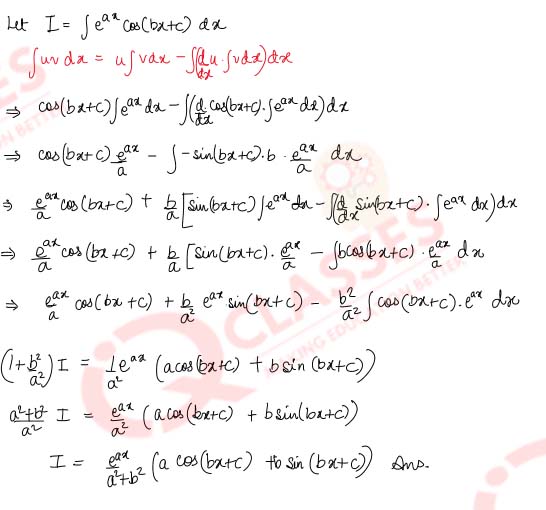 Let I = ∫e^{ax} cos(bx+c) dx
∫uv dx = u∫v dx - ∫(du/dx · ∫v dx) dx
⇒ cos(bx+c)∫e^{ax} dx - ∫(d/dx cos(bx+c) · ∫e^{ax} dx) dx
⇒ cos(bx+c) e^{ax}/a - ∫-sin(bx+c)·b · e^{ax}/a dx
⇒ e^{ax}/a cos(bx+c) + b/a [sin(bx+c)∫e^{ax} dx - ∫(d/dx sin(bx+c) · ∫e^{ax} dx) dx
⇒ e^{ax}/a cos(bx+c) + b/a [sin(bx+c) · e^{ax}/a - ∫bcos(bx+c) · e^{ax}/a dx
⇒ e^{ax}/a cos(bx+c) + b/a² e^{ax} sin(bx+c) - b²/a² ∫cos(bx+c) · e^{ax} dx
(1+b²/a²) I = 1/a² e^{ax} (a cos(bx+c) + b sin(bx+c))
(a²+b²)/a² I = e^{ax}/a² (a cos(bx+c) + b sin(bx+c))
I = e^{ax}/(a²+b²) (a cos(bx+c) + b sin(bx+c)) Ans.
CLASSES